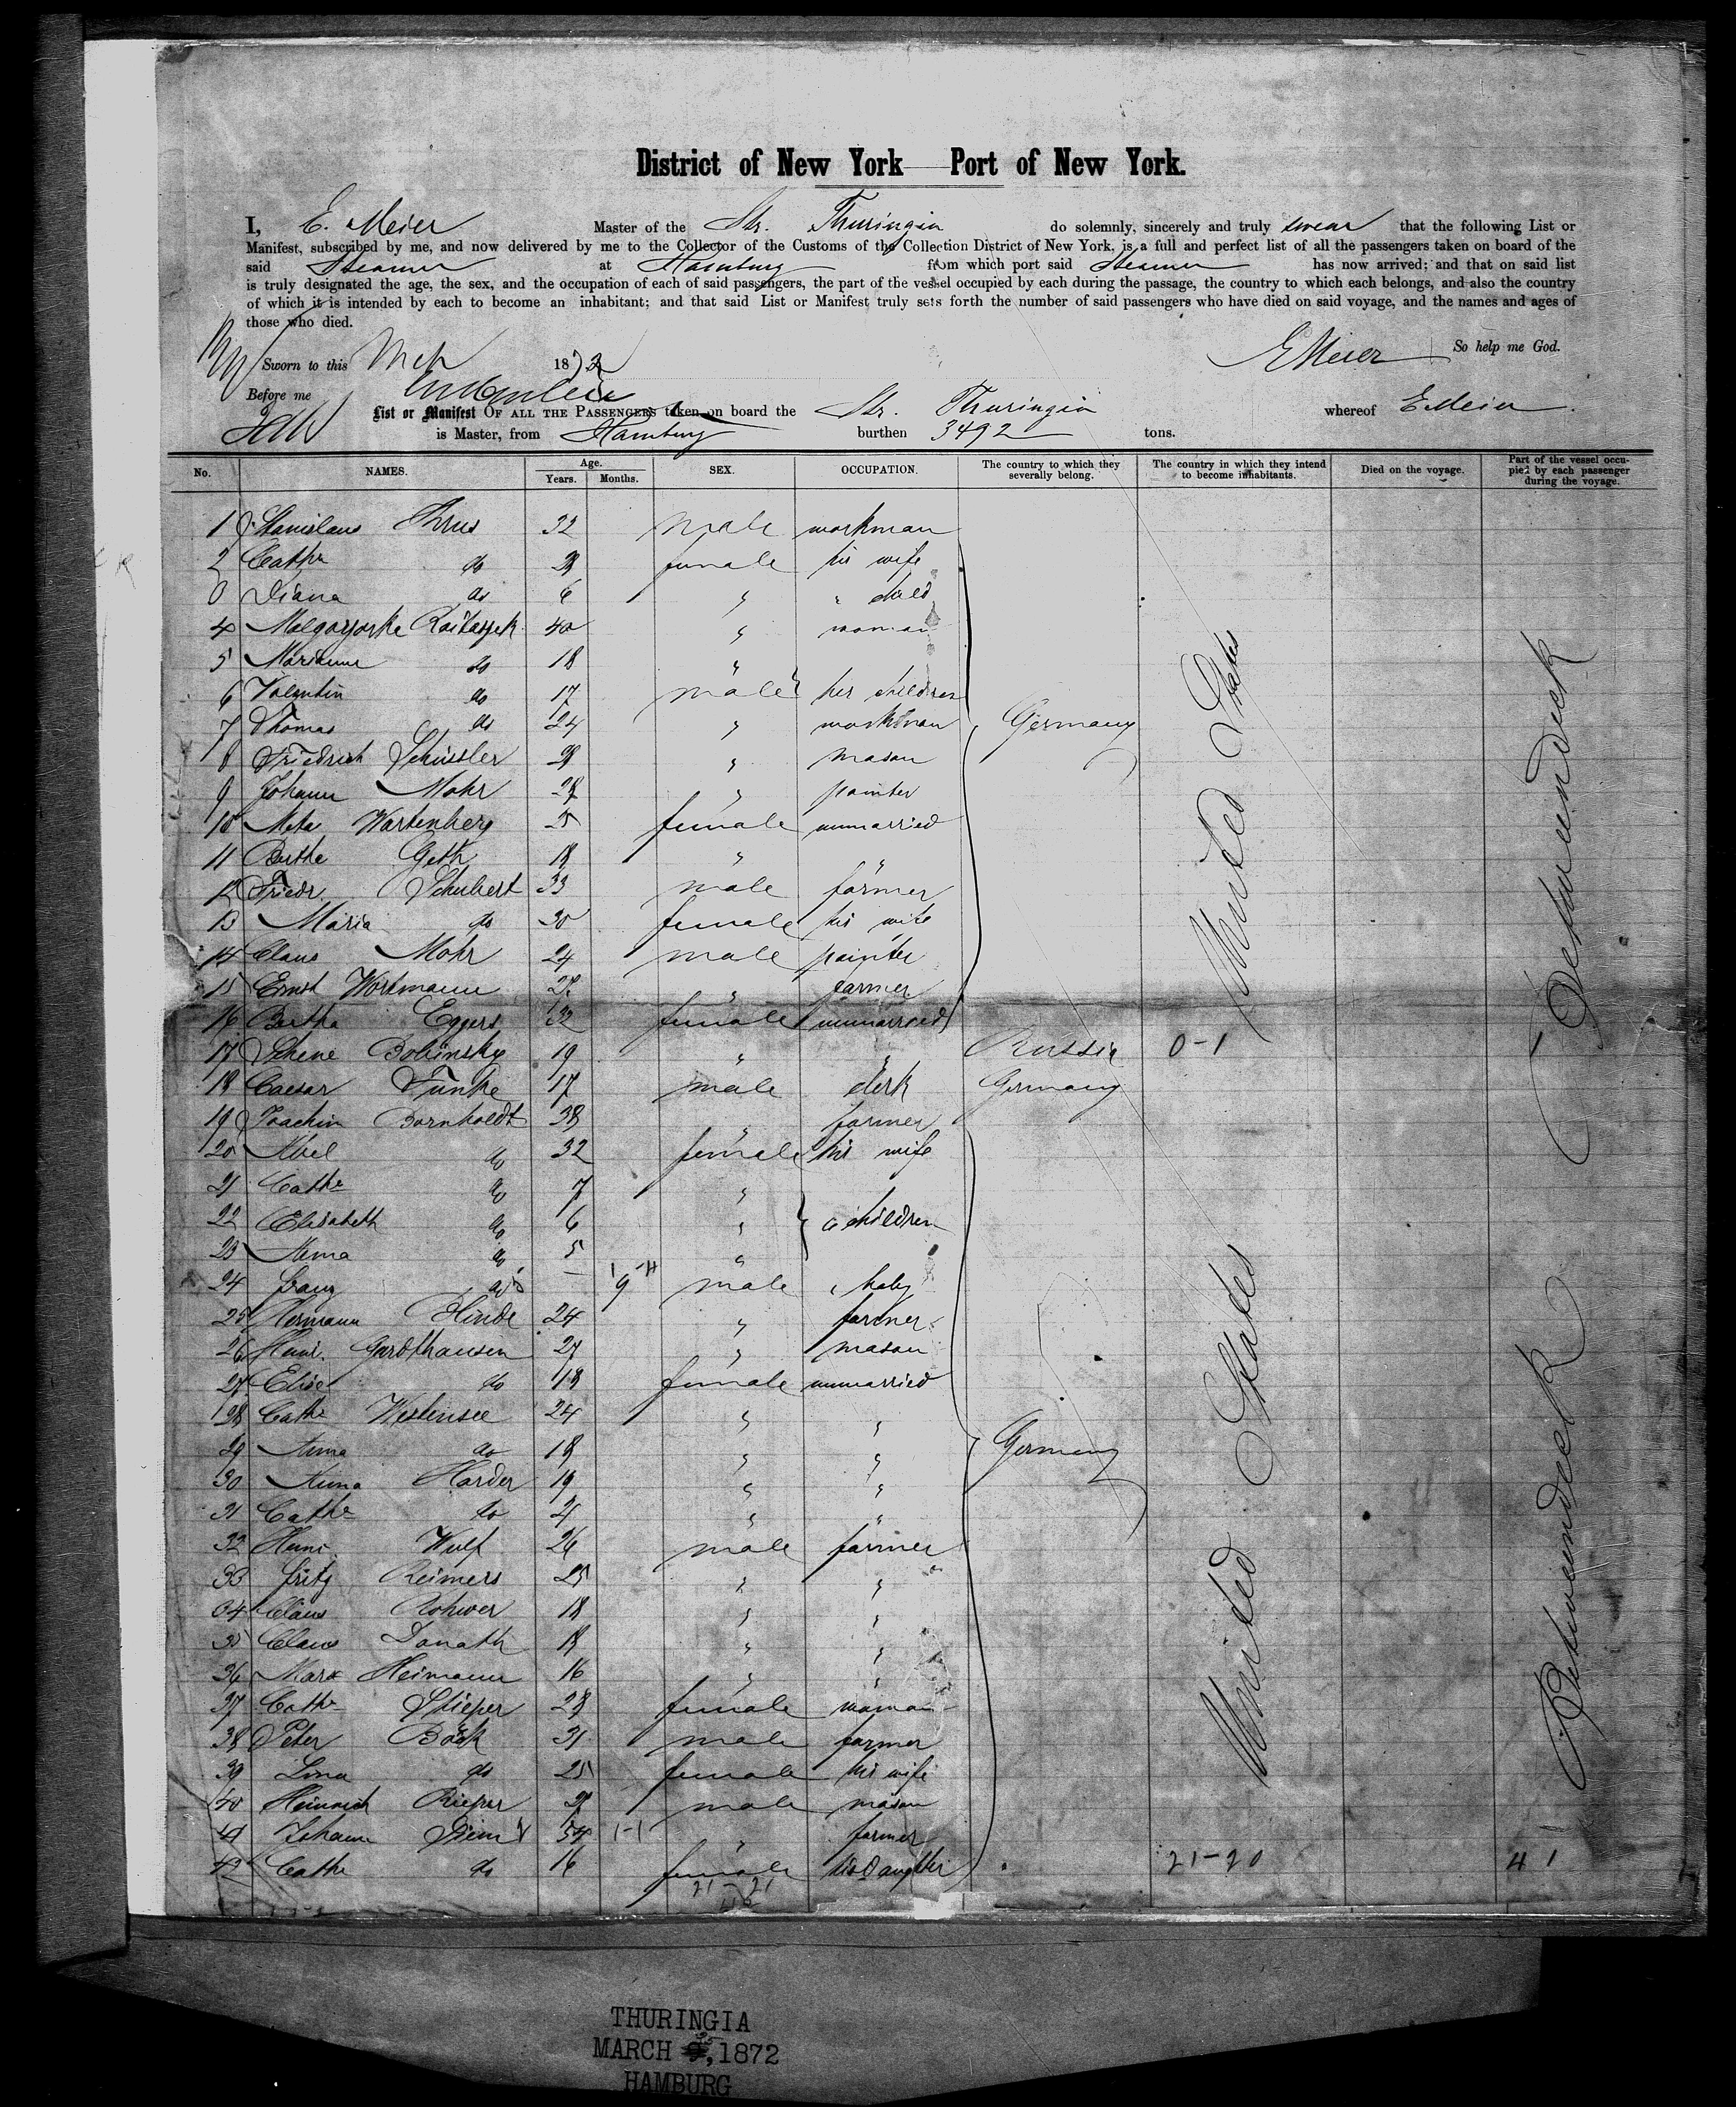 District of New York Port of New York.
I, E. Meier Master of the Str. Thuringia do solemnly, sincerely and truly swear that the following List or
Manifest, subscribed by me, and now delivered by me to the Collector of the Customs of the Collection District of New York, is a full and perfect list of all the passengers taken on board of the
said Steamer at Hamburg from which port said Steamer has now arrived; and that on said list
is truly designated the age, the sex, and the occupation of each of said passengers, the part of the vessel occupied by each during the passage, the country to which each belongs, and also the country
of which it is intended by each to become an inhabitant; and that said List or Manifest truly sets forth the number of said passengers who have died on said voyage, and the names and ages of
those who died.
Sworn to this Mch 1872 EMeier So help me God.
Before me
List or Manifest OF ALL THE PASSENGERS taken on board the Str. Thuringia whereof E Meier.
is Master, from Hamburg burthen 3492 tons.
No. NAMES. Age. Years. Months. SEX. OCCUPATION. The country to which they severally belong. The country in which they intend to become inhabitants. Died on the voyage. Part of the vessel occupied by each passenger during the voyage.
1 Stanislaus 32 male workman
2 Cathe do female his wife
3 Diana do 6 " " child
4 40 " woman
5 Marianne do 18 "
6 Valentin do 17 male her children
7 Thomas do 24 " workman Germany
8 Friedrich Schüssler " mason
9 Johann Mohr " painter
10 Meta Wartenberg 25 female unmarried
11 Berthe Geth 18 " "
12 Friedr. Schubert 33 male farmer
13 Maria do 30 female his wife
14 Claus Mohr 24 male painter
15 Ernst Workmann " farmer
16 Bertha Eggers 32 female unmarried
United States
Between deck
17 Bolinsky 19 " " Russia 0-1
18 Caesar Funke 17 male clerk Germany
19 Joachim Bornholdt 38 " farmer
20 Abel do 32 female his wife
21 Cathe do 7 "
22 Elisabeth do 6 " children
23 Anna do 5 "
24 Franz do — 9 male " baby
25 Hermann Hinde 24 " farmer
26 Heinr. Gardthausen 27 " mason
27 Elise do 18 female unmarried
28 Cathe Westensee 24 " "
29 Anna do 18 " " Germany
30 Anna Harder 19 " "
31 Cathe do 21 " "
32 Heinr. Wulf 26 male farmer
33 Fritz Reimers 25 " "
34 Claus Rohwer 18 " "
35 Claus Donath " "
36 Marx Heimann 16 " "
37 Cathe Stieper 28 female woman
38 Peter Böök 31 male farmer
39 Lina do 25 female his wife
40 Heinrich Rieper male mason
41 Johann 54 1-1 " farmer
42 Cathe do 16 female his Daughter 21-20 41
United States
Between deck
21-21
THURINGIA
MARCH 25, 1872
HAMBURG